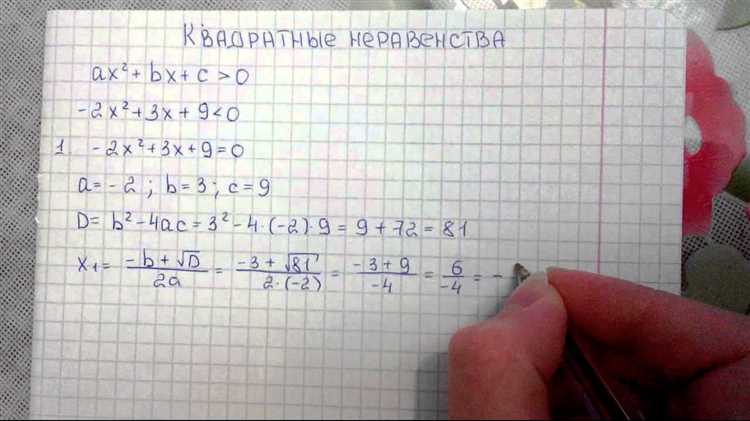 Квадратные неравенства
ax² + bx + c > 0
-2x² + 3x + 9 < 0
1 -2x² + 3x + 9 = 0
a = -2 ; b = 3 ; c = 9
D = b² - 4ac = 3² - 4·(-2)·9 = 9 + 72 = 81
x₁ = (-b + √D)/(2a) = (-3 + √81)/(2·(-2)) = (-3 + 9)/(-4) = 6/(-4) = -